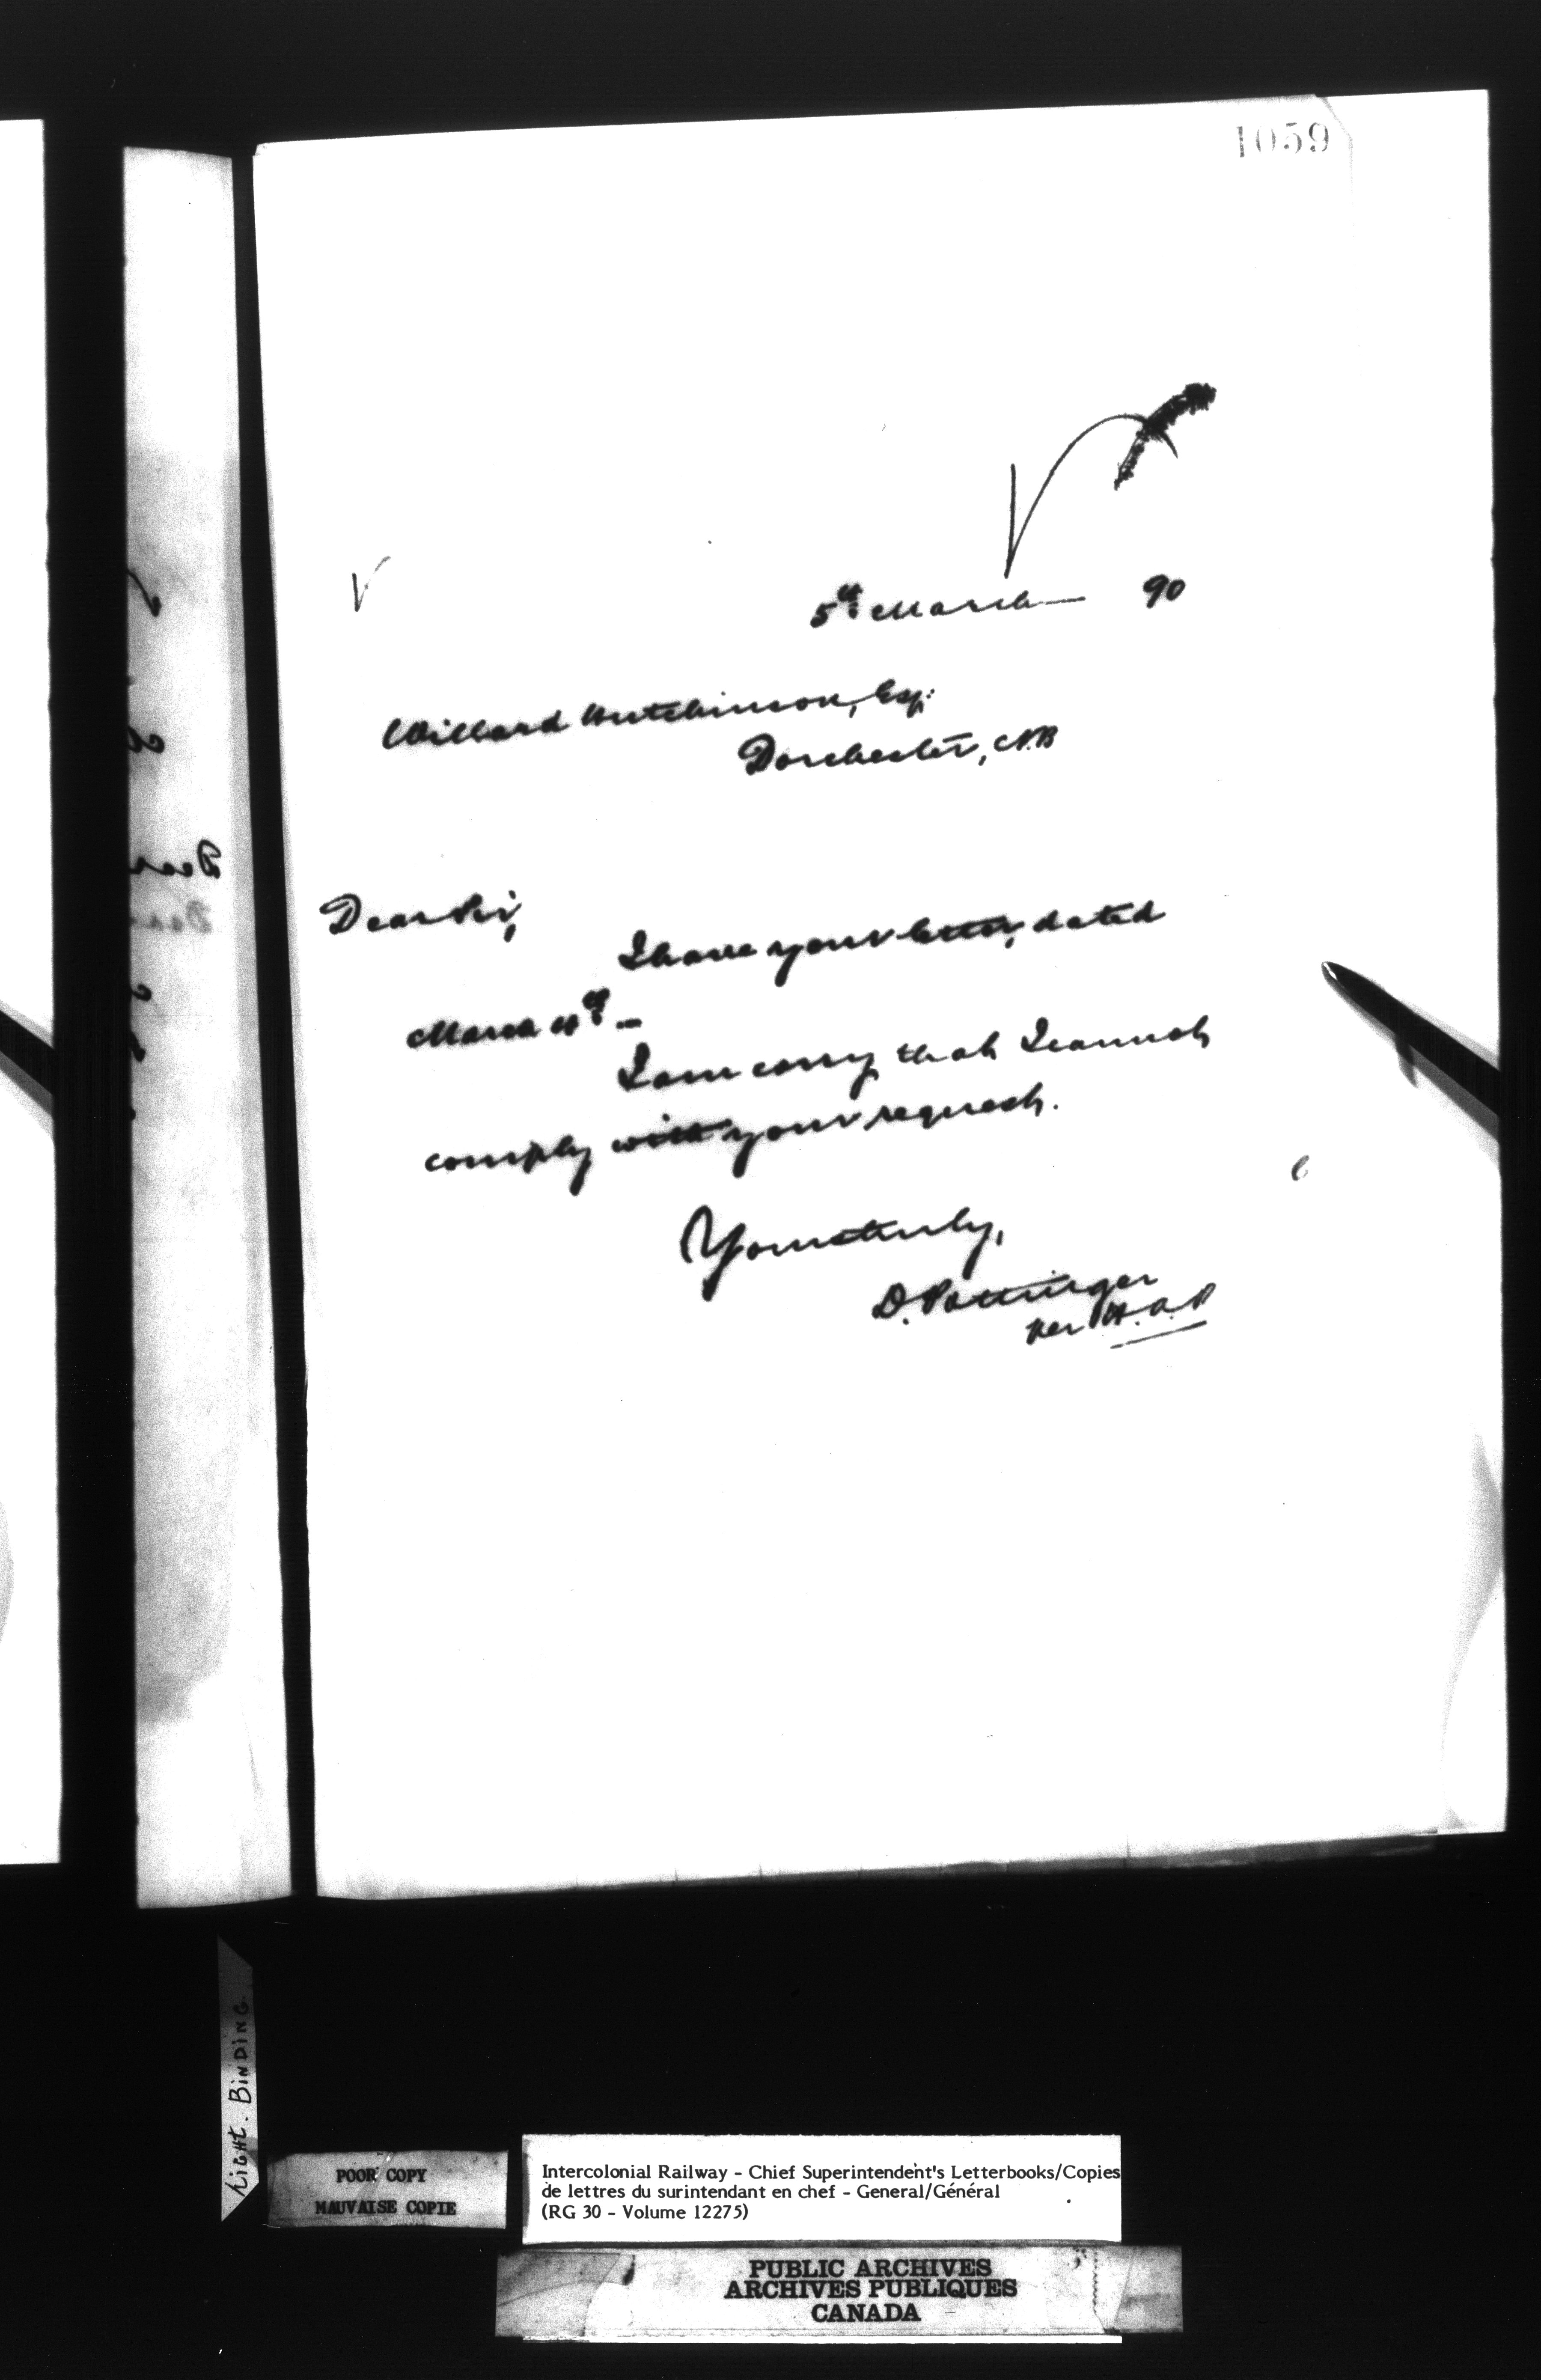 1059
5th March — 90
Willard Hutchinson, Esq.
Dorchester, N.B
Dear Sir,
I have your letter, dated
March 4th —
I am sorry that I cannot
comply with your request.
Yours truly,
D. Pottinger
per H.A.P
LIGHT. BINDING.
POOR COPY
MAUVAISE COPIE
Intercolonial Railway - Chief Superintendent's Letterbooks/Copies
de lettres du surintendant en chef - General/Général
(RG 30 - Volume 12275)
PUBLIC ARCHIVES
ARCHIVES PUBLIQUES
CANADA